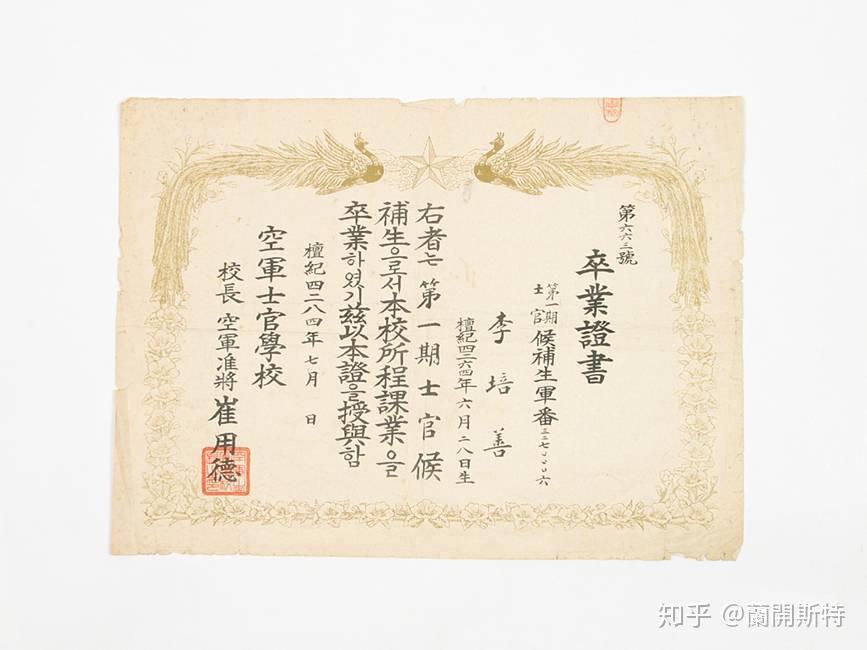 第六六三號
卒業證書
第一期
士官
候補生軍番
李培善
檀紀四二六四年六月二八日生
右者는第一期士官候
補生으로서本校所程課業을
卒業하였기玆以本證을授與함
檀紀四二八四年七月 日
空軍士官學校
校長 空軍准將 崔用德
知乎 @蘭開斯特